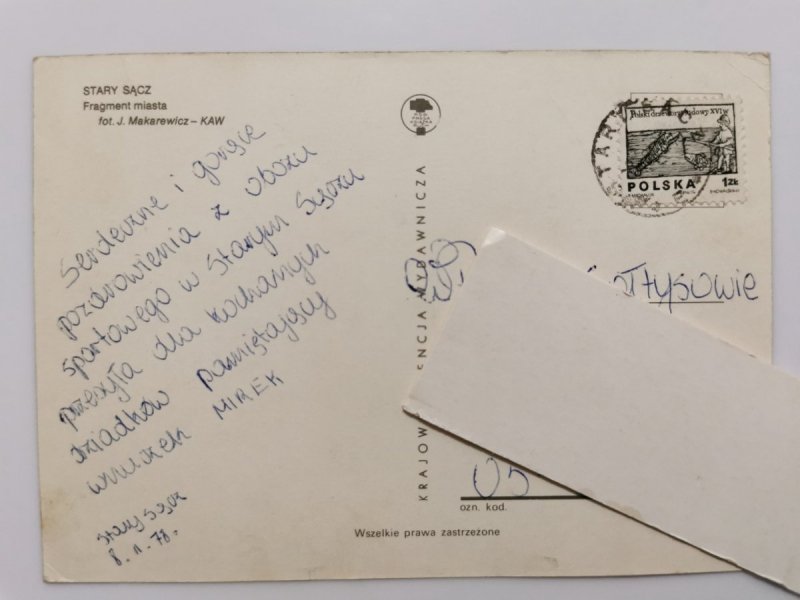 STARY SĄCZ
Fragment miasta
fot. J. Makarewicz – KAW
Serdeczne i gorące
pozdrowienia z obozu
sportowego w Starym Sączu
przesyła dla kochanych
dziadków pamiętający
wnuczek MIREK
Stary Sącz
8.11.78.
KRAJOW ENCJA WYDAWNICZA
Polski drzeworyt ludowy XVI w
POLSKA 1 ZŁ
ołtysowie
05
ozn. kod.
Wszelkie prawa zastrzeżone